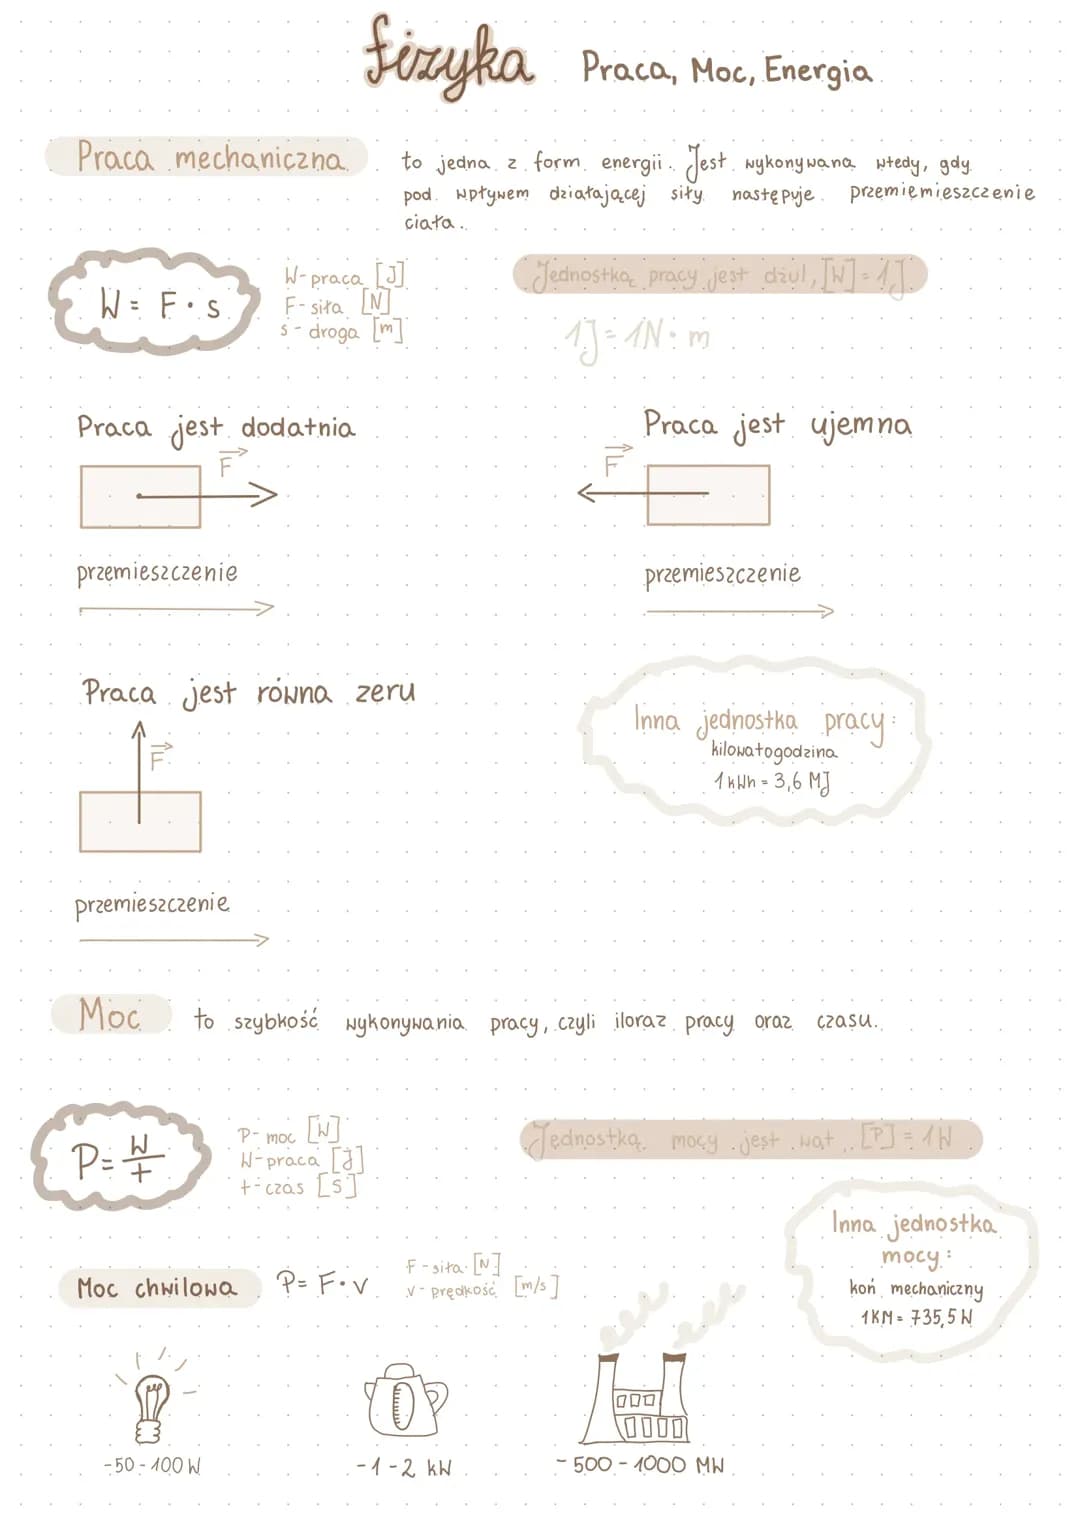 fizyka Praca, Moc, Energia
Praca mechaniczna to jedna z form energii. Jest wykonywana wtedy, gdy
pod wpływem działającej siły następuje przemiemieszczenie
ciała.
W = F · s
W - praca [J]
F - siła [N]
s - droga [m]
Jednostką pracy jest dżul, [W] = 1J
1J = 1N · m
Praca jest dodatnia
F
przemieszczenie
Praca jest ujemna
F
przemieszczenie
Praca jest równa zeru
F
przemieszczenie
Inna jednostka pracy:
kilowatogodzina
1 kWh = 3,6 MJ
Moc to szybkość wykonywania pracy, czyli iloraz pracy oraz czasu.
P = W/t
P - moc [W]
W - praca [J]
t - czas [s]
Jednostką mocy jest wat, [P] = 1W
Inna jednostka
mocy:
koń mechaniczny
1KM = 735,5 W
Moc chwilowa P = F · v
F - siła [N]
v - prędkość [m/s]
~50 - 100 W
~1 - 2 kW
~500 - 1000 MW